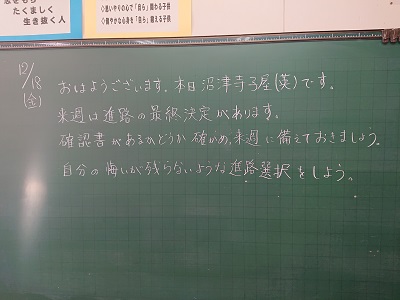 たくましく
生き抜く人
◇思いやりの心で「自ら」関わる子供
◇健やかな心身を「自ら」鍛える子供
12/18
(金)
おはようございます。本日沼津寺子屋(英)です。
来週は進路の最終決定があります。
確認書があるかどうか確かめ、来週に備えておきましょう。
自分の悔いが残らないような進路選択をしよう。